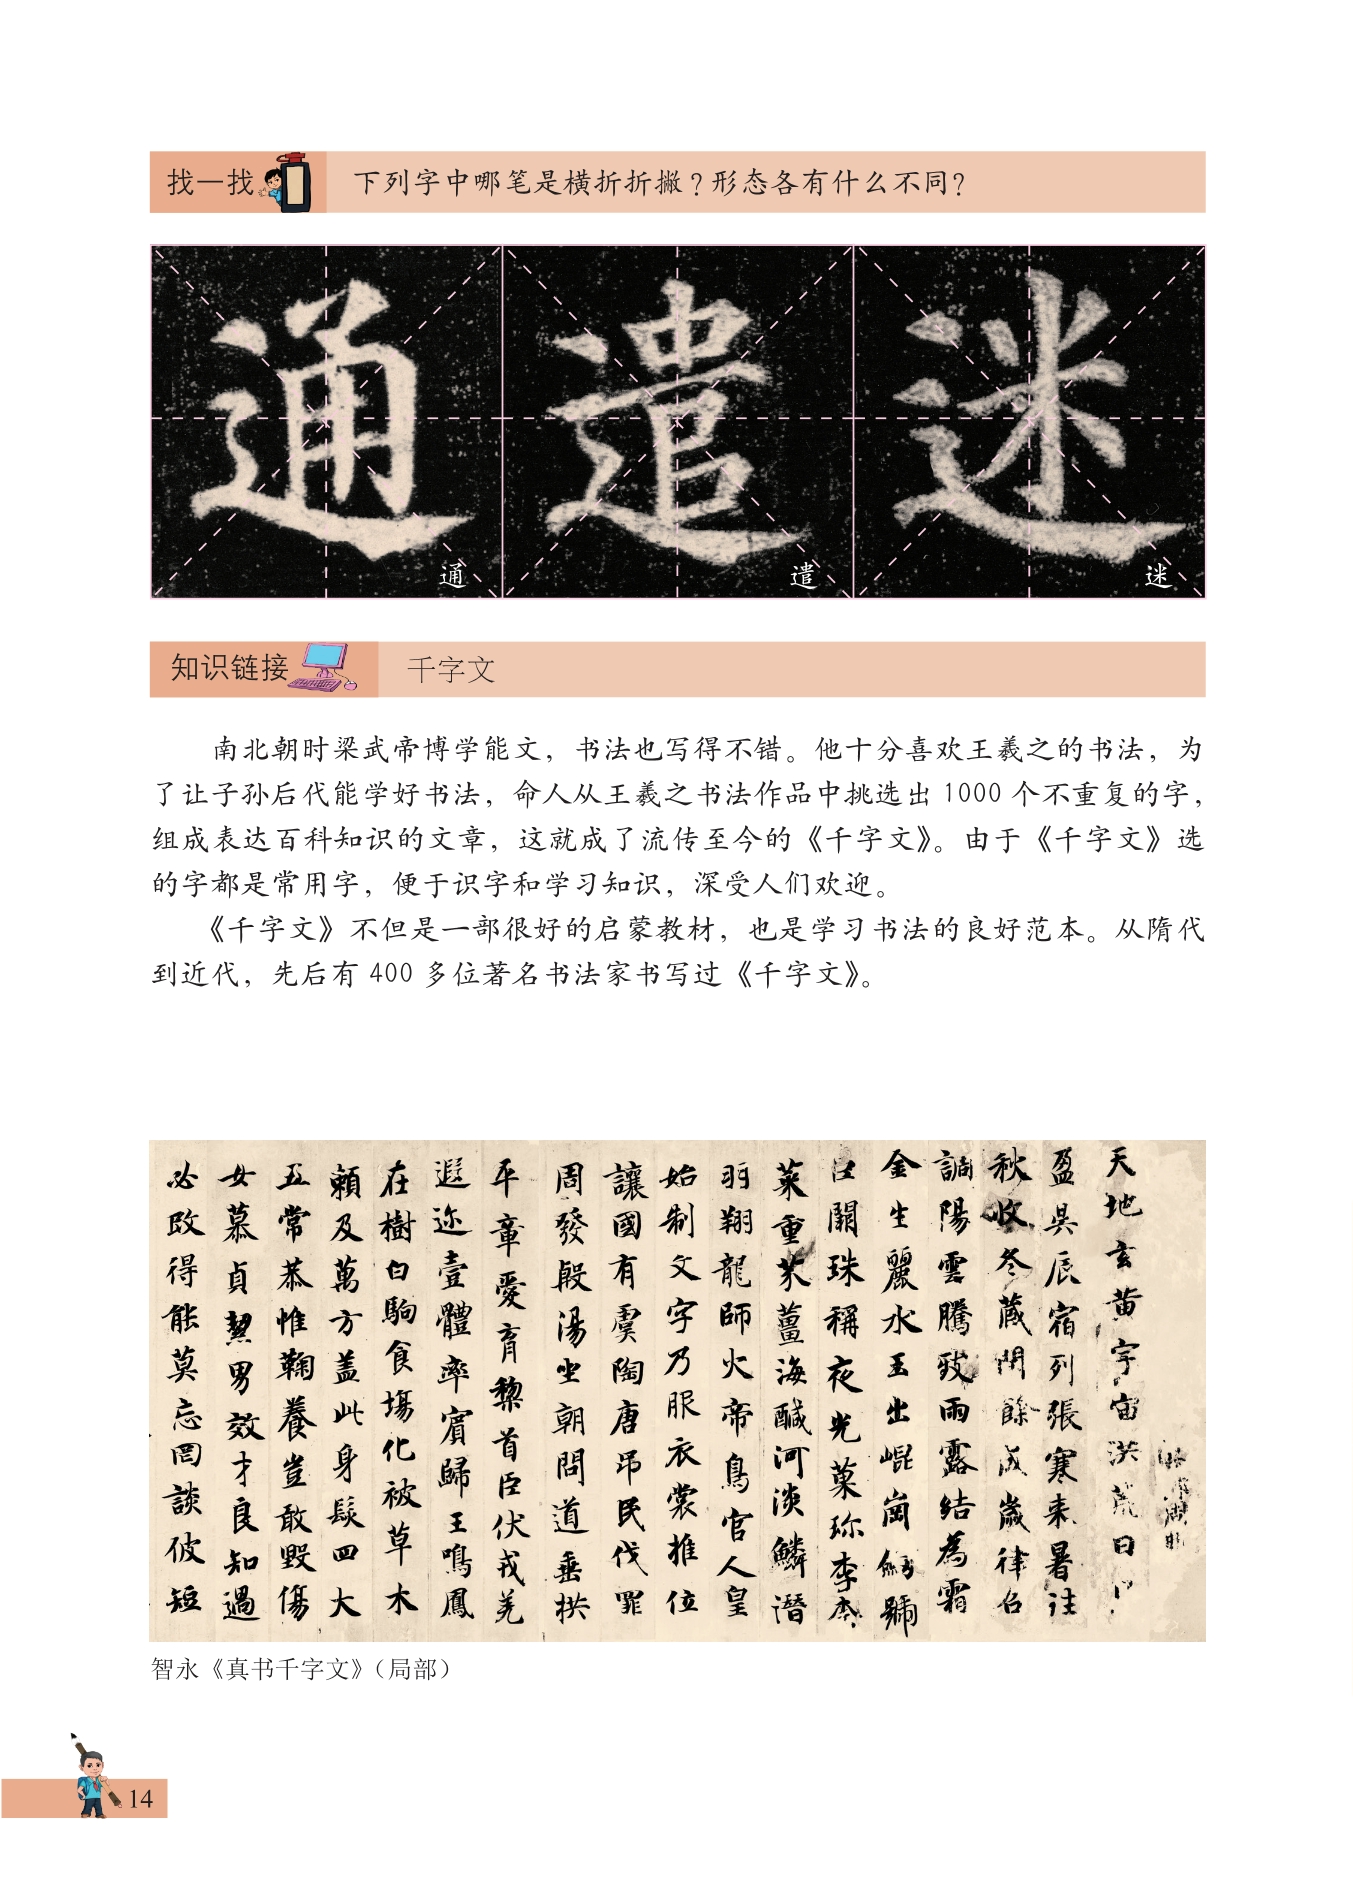 找一找
下列字中哪笔是横折折撇？形态各有什么不同？
通 遣 迷
通 遣 迷
知识链接
千字文
南北朝时梁武帝博学能文，书法也写得不错。他十分喜欢王羲之的书法，为
了让子孙后代能学好书法，命人从王羲之书法作品中挑选出 1000 个不重复的字，
组成表达百科知识的文章，这就成了流传至今的《千字文》。由于《千字文》选
的字都是常用字，便于识字和学习知识，深受人们欢迎。
《千字文》不但是一部很好的启蒙教材，也是学习书法的良好范本。从隋代
到近代，先后有 400 多位著名书法家书写过《千字文》。
天地玄黄宇宙洪荒日
盈昃辰宿列張寒来暑往
秋收冬蔵閏餘成歲律召
調陽雲騰致雨露結為霜
金生麗水玉出崐崗劒號
巨闕珠稱夜光菓珎李柰
菜重芥薑海醎河淡鱗潛
羽翔龍師火帝鳥官人皇
始制文字乃服衣裳推位
讓國有虞陶唐吊民伐罪
周發殷湯坐朝問道垂拱
平章愛育黎首臣伏戎羌
遐迩壹體率賓歸王鳴鳳
在樹白駒食場化被草木
頼及萬方盖此身髮四大
五常恭惟鞠養豈敢毀傷
女慕貞絜男效才良知過
必改得能莫忘罔談彼短
智永《真书千字文》（局部）
14